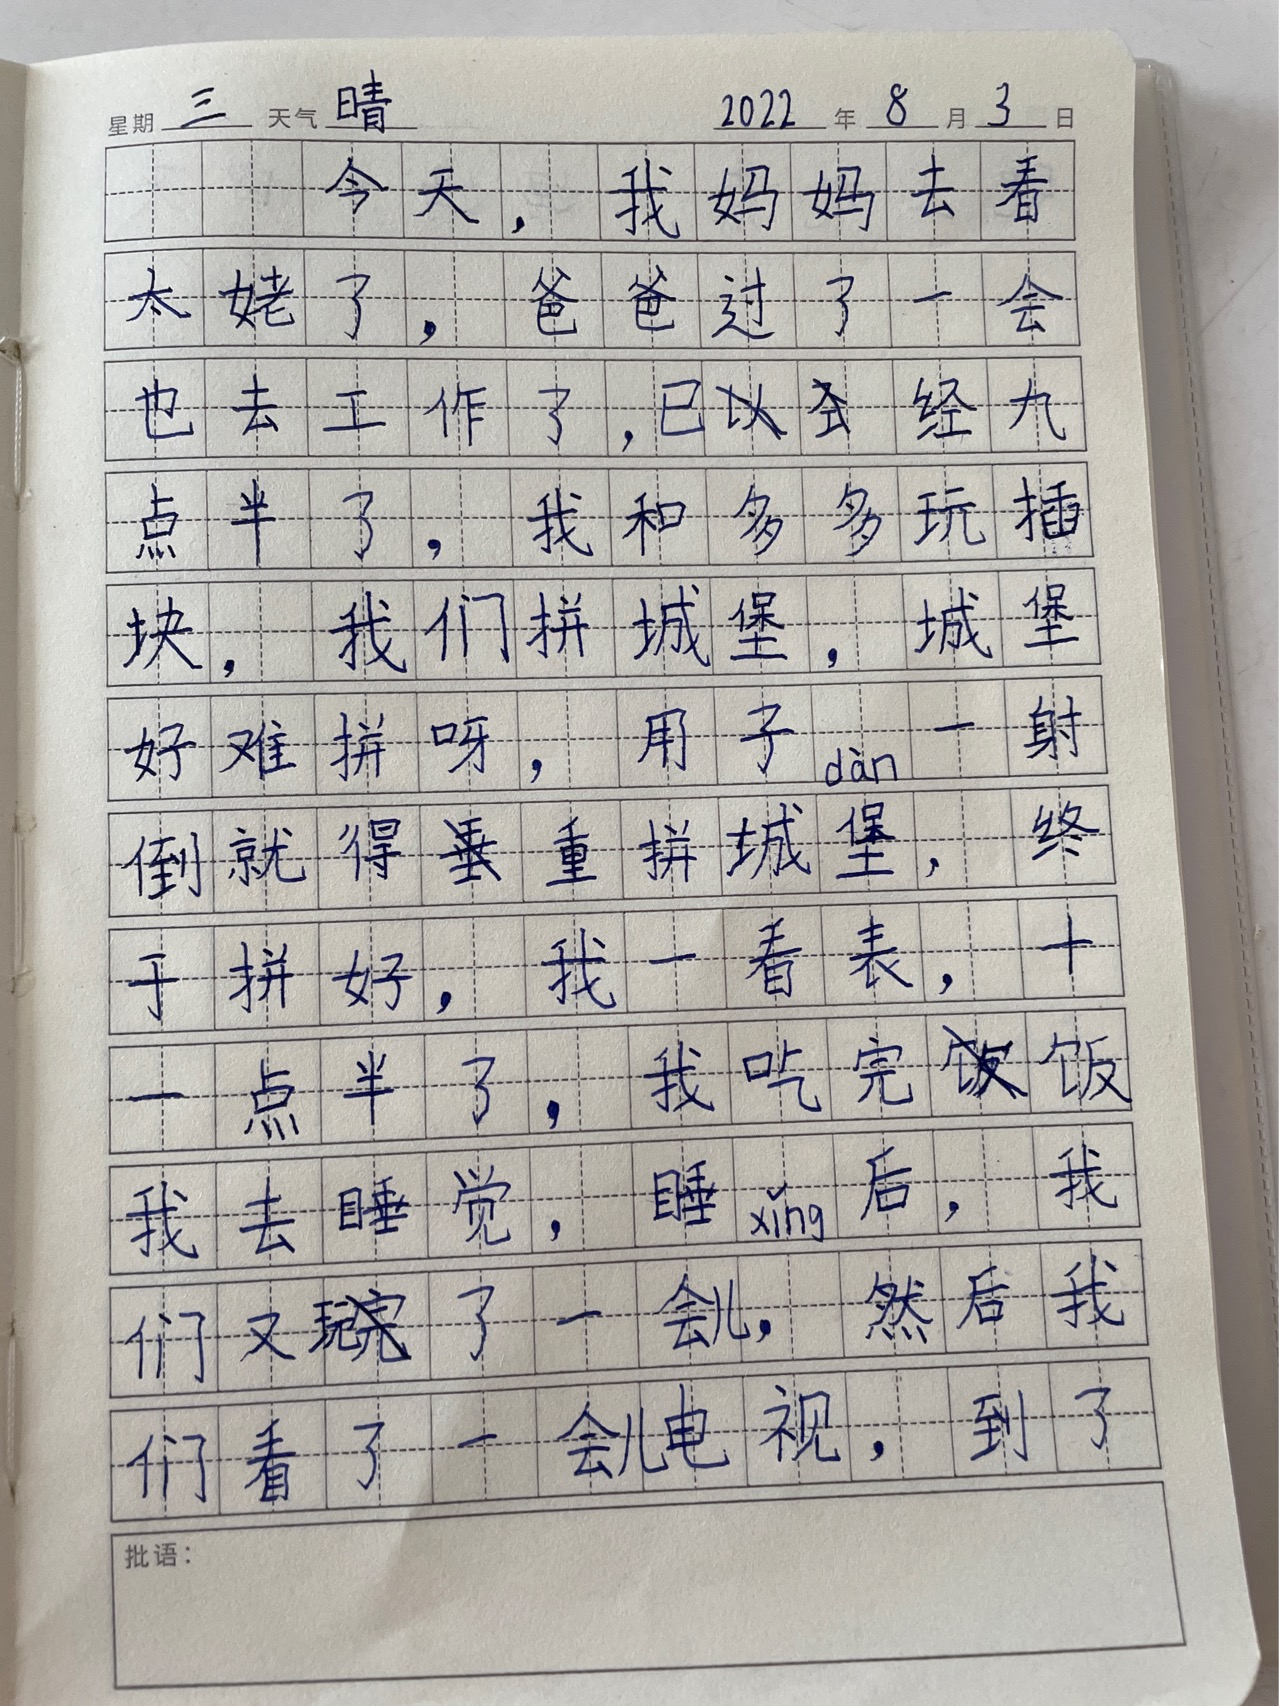 星期 三 天气 晴 2022 年 8 月 3 日
今天，我妈妈去看
太姥了，爸爸过了一会
也去工作了，已经九
点半了，我和多多玩插
块，我们拼城堡，城堡
好难拼呀，用子dàn一射
倒就得重拼城堡，终
于拼好，我一看表，十
一点半了，我吃完饭
我去睡觉，睡xǐng后，我
们又玩了一会儿，然后我
们看了一会儿电视，到了
批语：